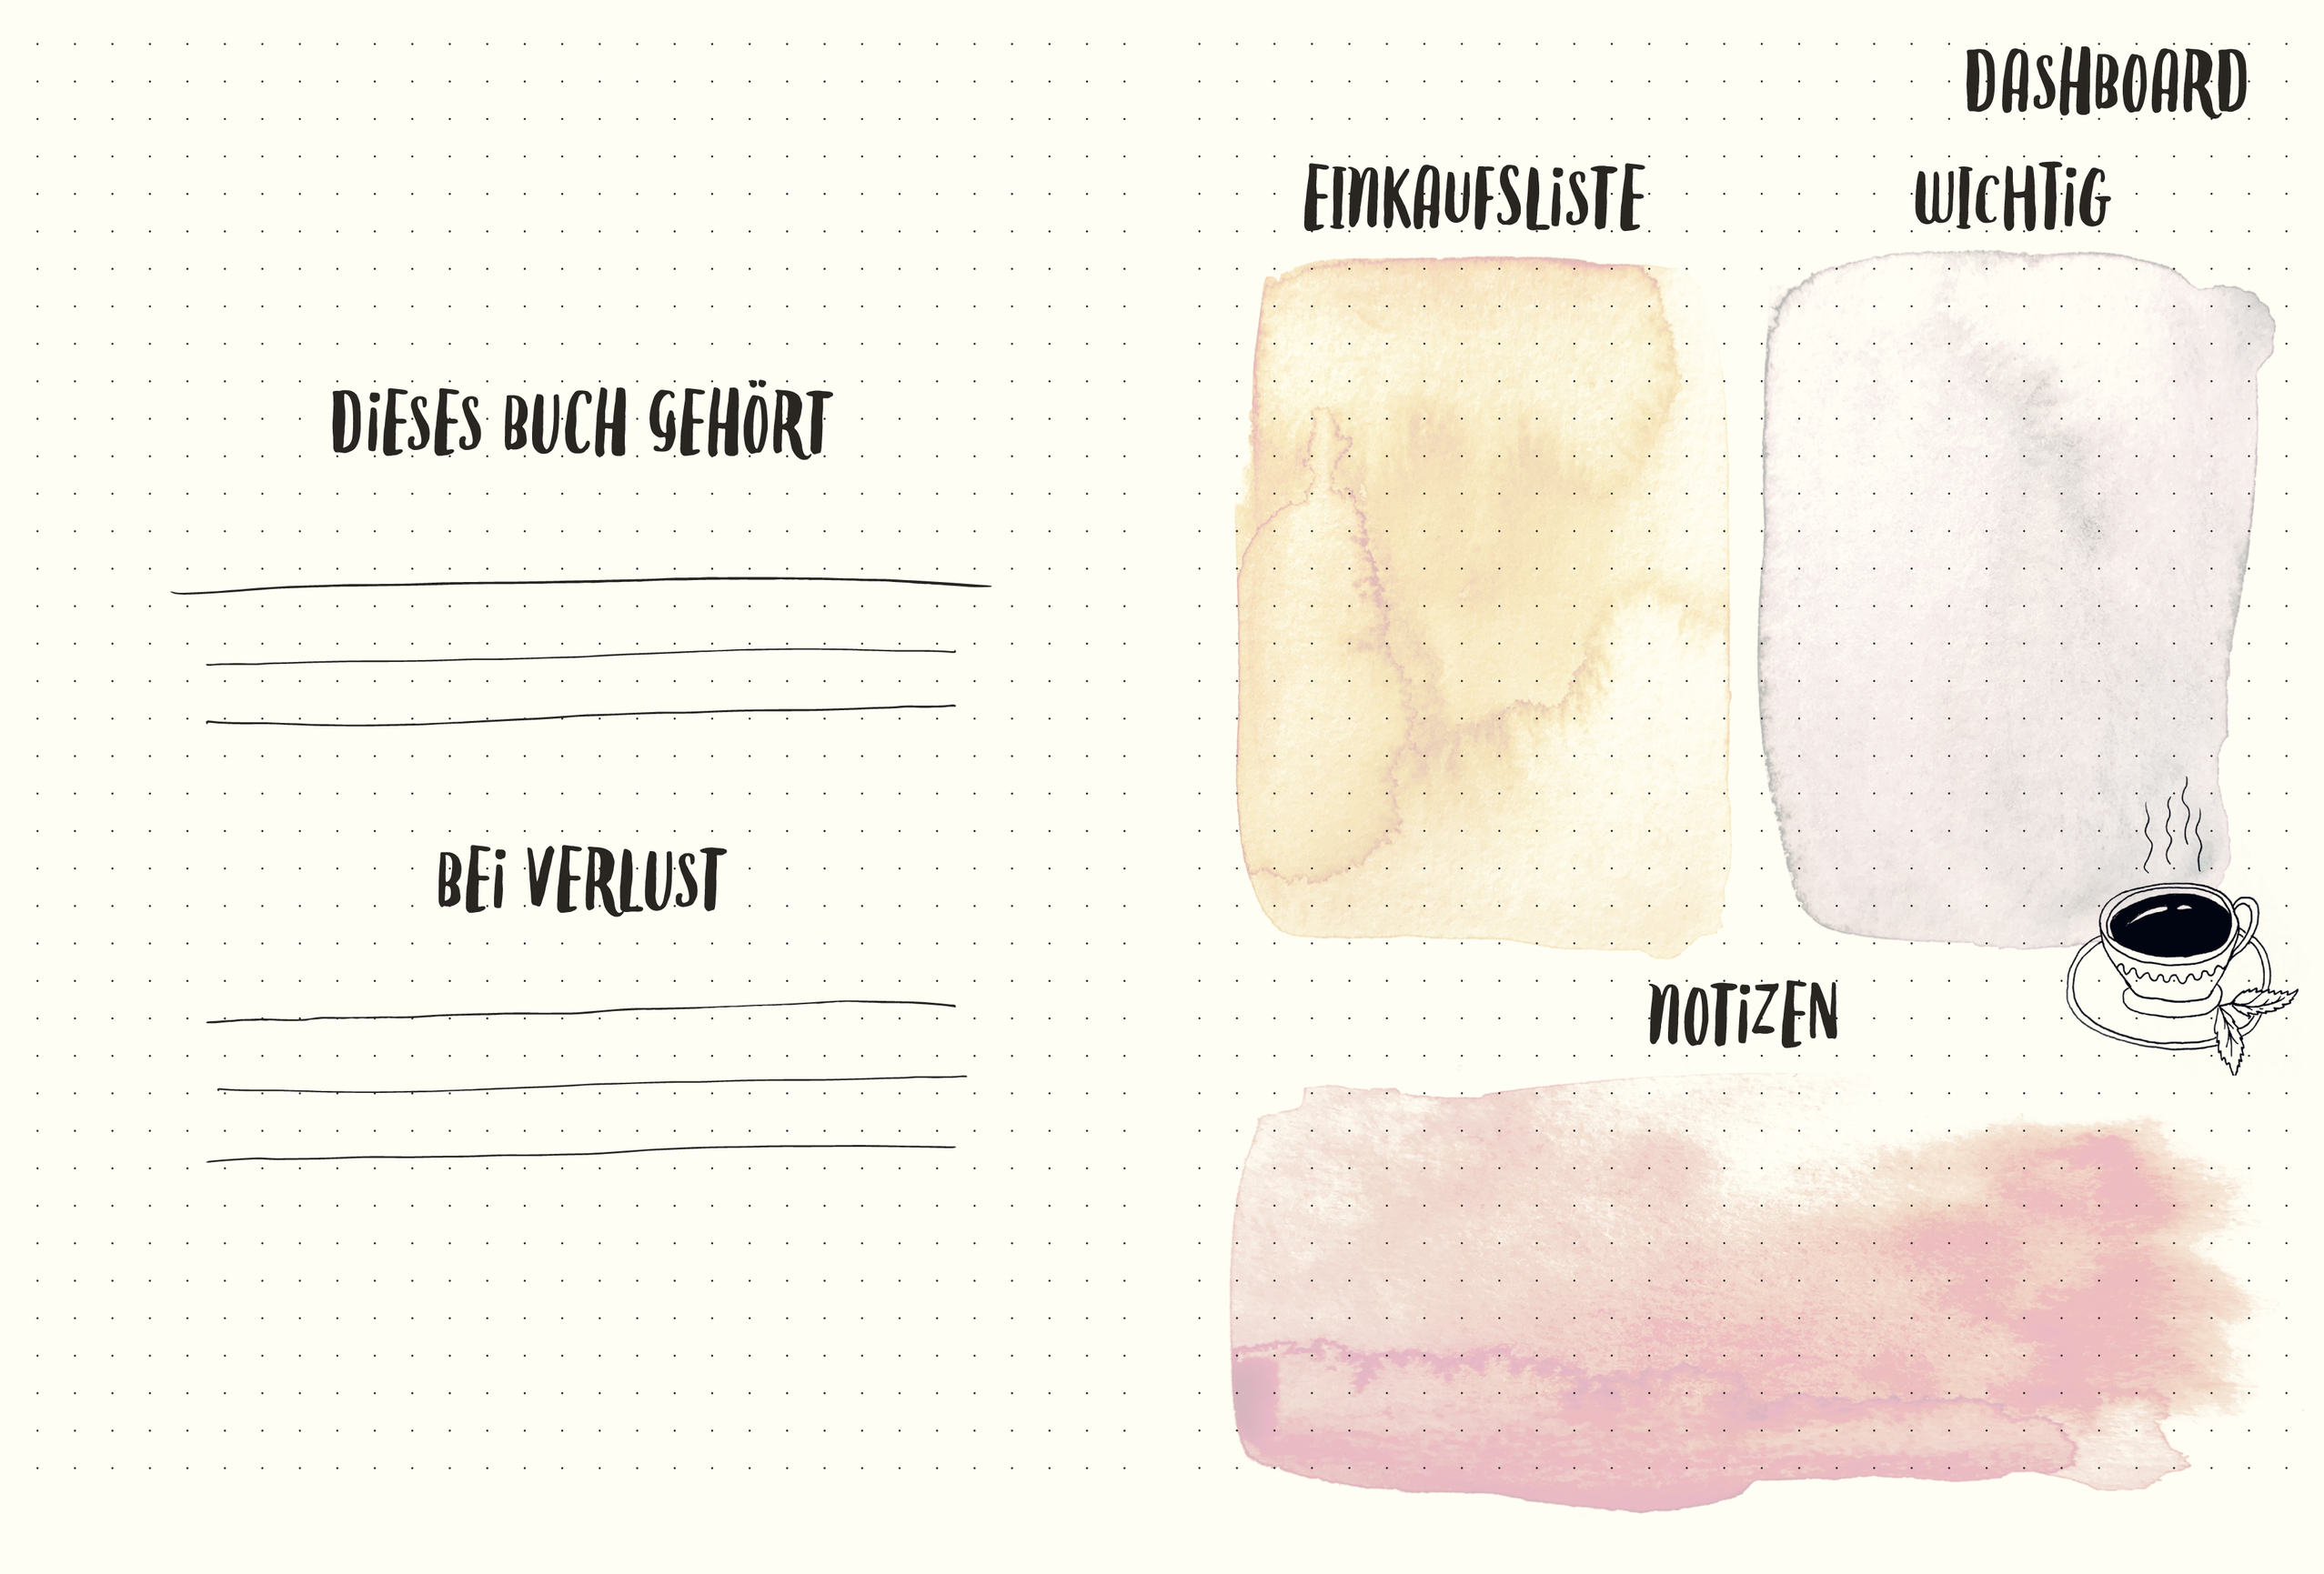 DiESES BUCH GEHÖRT
BEi VERLUST
DASHBOARD
EINKAUFSLiSTE
WICHTiG
NOTiZEN